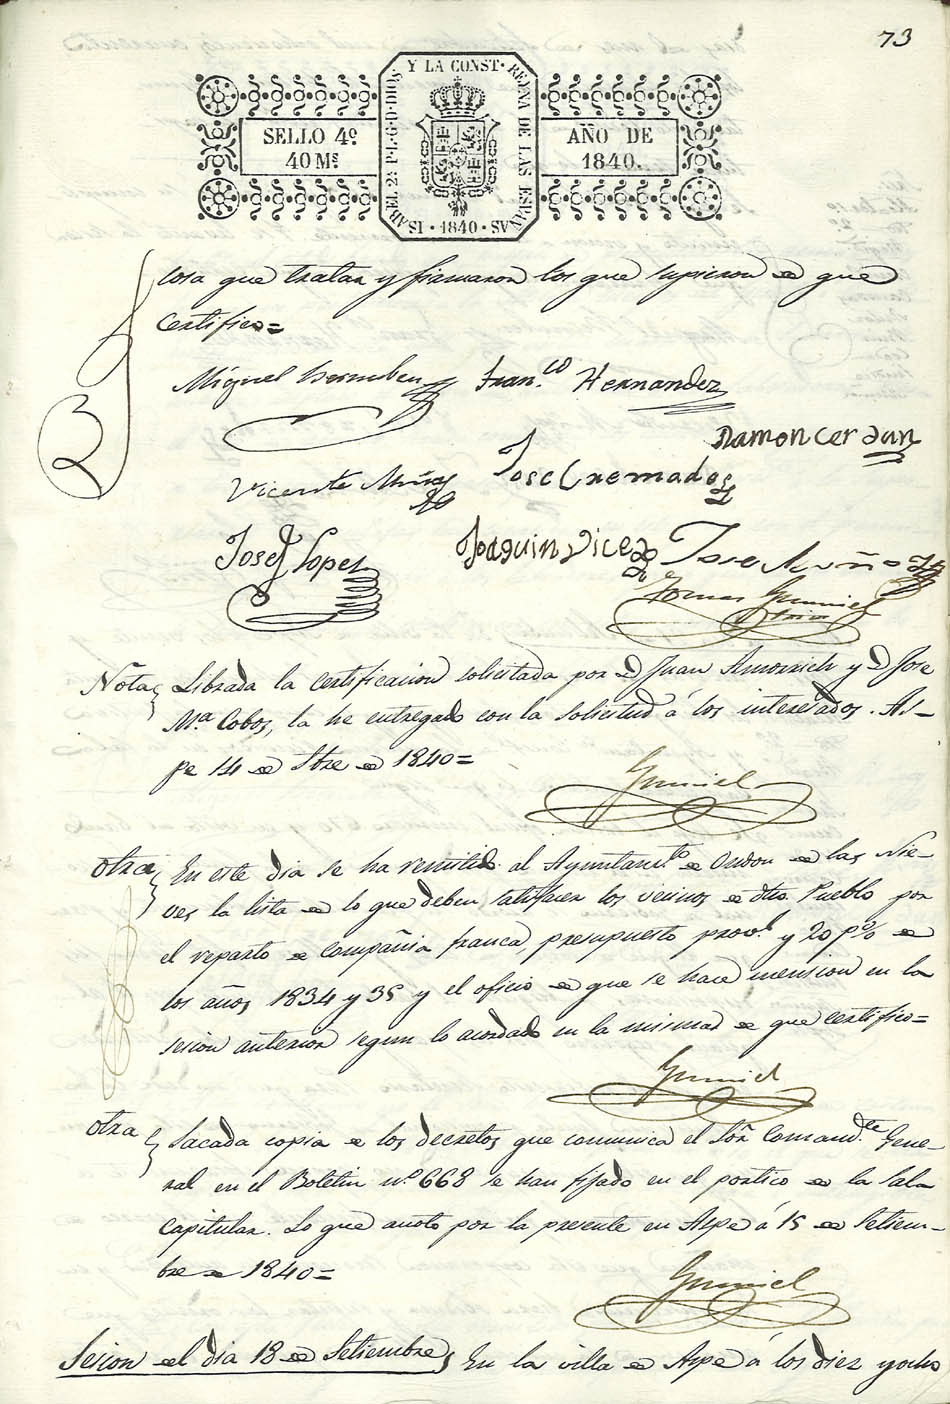 73
SELLO 4º
40 Mˢ
ISABEL 2ª P.L.G.D.DIOS Y LA CONST. REYNA DE LAS ESPAÑAS
· 1840 ·
AÑO DE
1840.
cosa que tratar y firmaron los que supieron de que
certifico=
Miguel
Fran.co Hernandez
Ramon cerdan
Vicente Muñoz
Jose Cremades
Josef Lopez
Joaquin Vicedo
Jose Muñoz
Tomas Gumiel
Nota Librada la certificacion solicitada por D Juan y D Jose
Mª Cobos, la he entregado con la solicitud á los interesados. As-
pe 14 de Stre de 1840=
Gumiel
otra En este dia se ha remitido al Ayuntam.to de Ondon de las Nie-
ves la lista de lo que deben satisfacer los vecinos de dho. Pueblo por
el reparto de compañia franca, presupuesto prov.l y 20 p% de
los años 1834 y 35 y el oficio de que se hace mension en la
sesion anterior segun lo acordado en la misma de que certifico=
Gumiel
otra Sacada copia de los decretos que comunica el Sõr Comand.te Gene-
ral en el Boletin nº 668 se han fijado en el portico de la Sala
capitular. Lo que anoto por la presente en Aspe á 15 de Setiem-
bre de 1840=
Gumiel
Sesion del dia 18 de Setiembre En la villa de Aspe á los diez y ocho